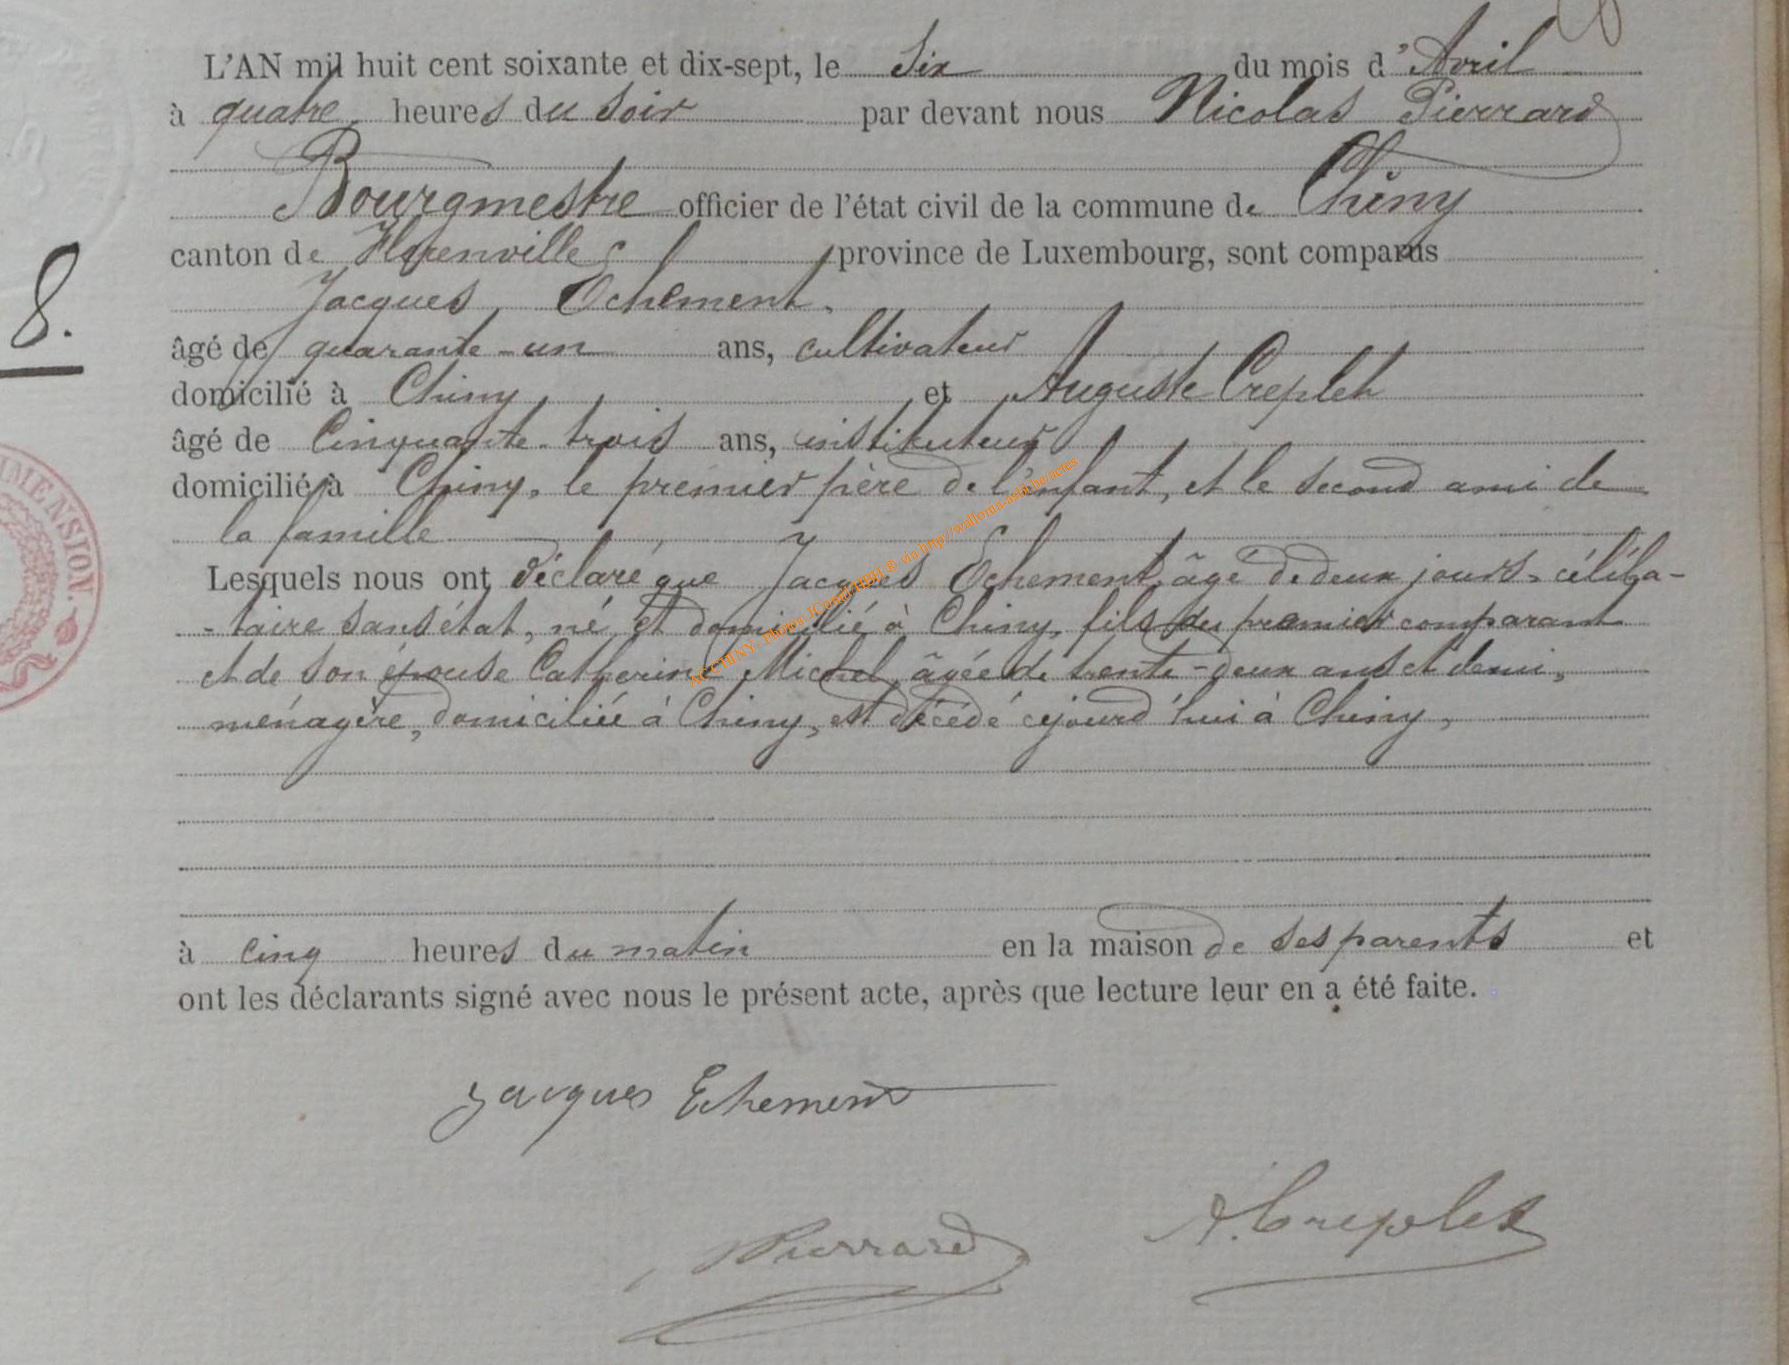 L'AN mil huit cent soixante et dix-sept, le Six du mois d'Avril
à quatre heures du soir par devant nous Nicolas Pierrard
Bourgmestre officier de l'état civil de la commune de Chiny
canton de Florenville province de Luxembourg, sont comparus
Jacques Echement.
8.
âgé de quarante-un ans, cultivateur
domicilié à Chiny et Auguste Creplet
âgé de Cinquante-trois ans, instituteur
domicilié à Chiny, le premier père de l'enfant, et le second ami de
la famille
Lesquels nous ont déclaré que Jacques Echement, âgé de deux jours, céliba-
-taire sans état, né et domicilié à Chiny, fils du premier comparant
et de son épouse Catherine Michel, âgée de trente-deux ans et demi,
ménagère, domiciliée à Chiny, est décédé cejourd'hui à Chiny,
à cinq heures du matin en la maison de ses parents et
ont les déclarants signé avec nous le présent acte, après que lecture leur en a été faite.
Jacques Echement
Pierrard
A. Creplet
IMENSION.